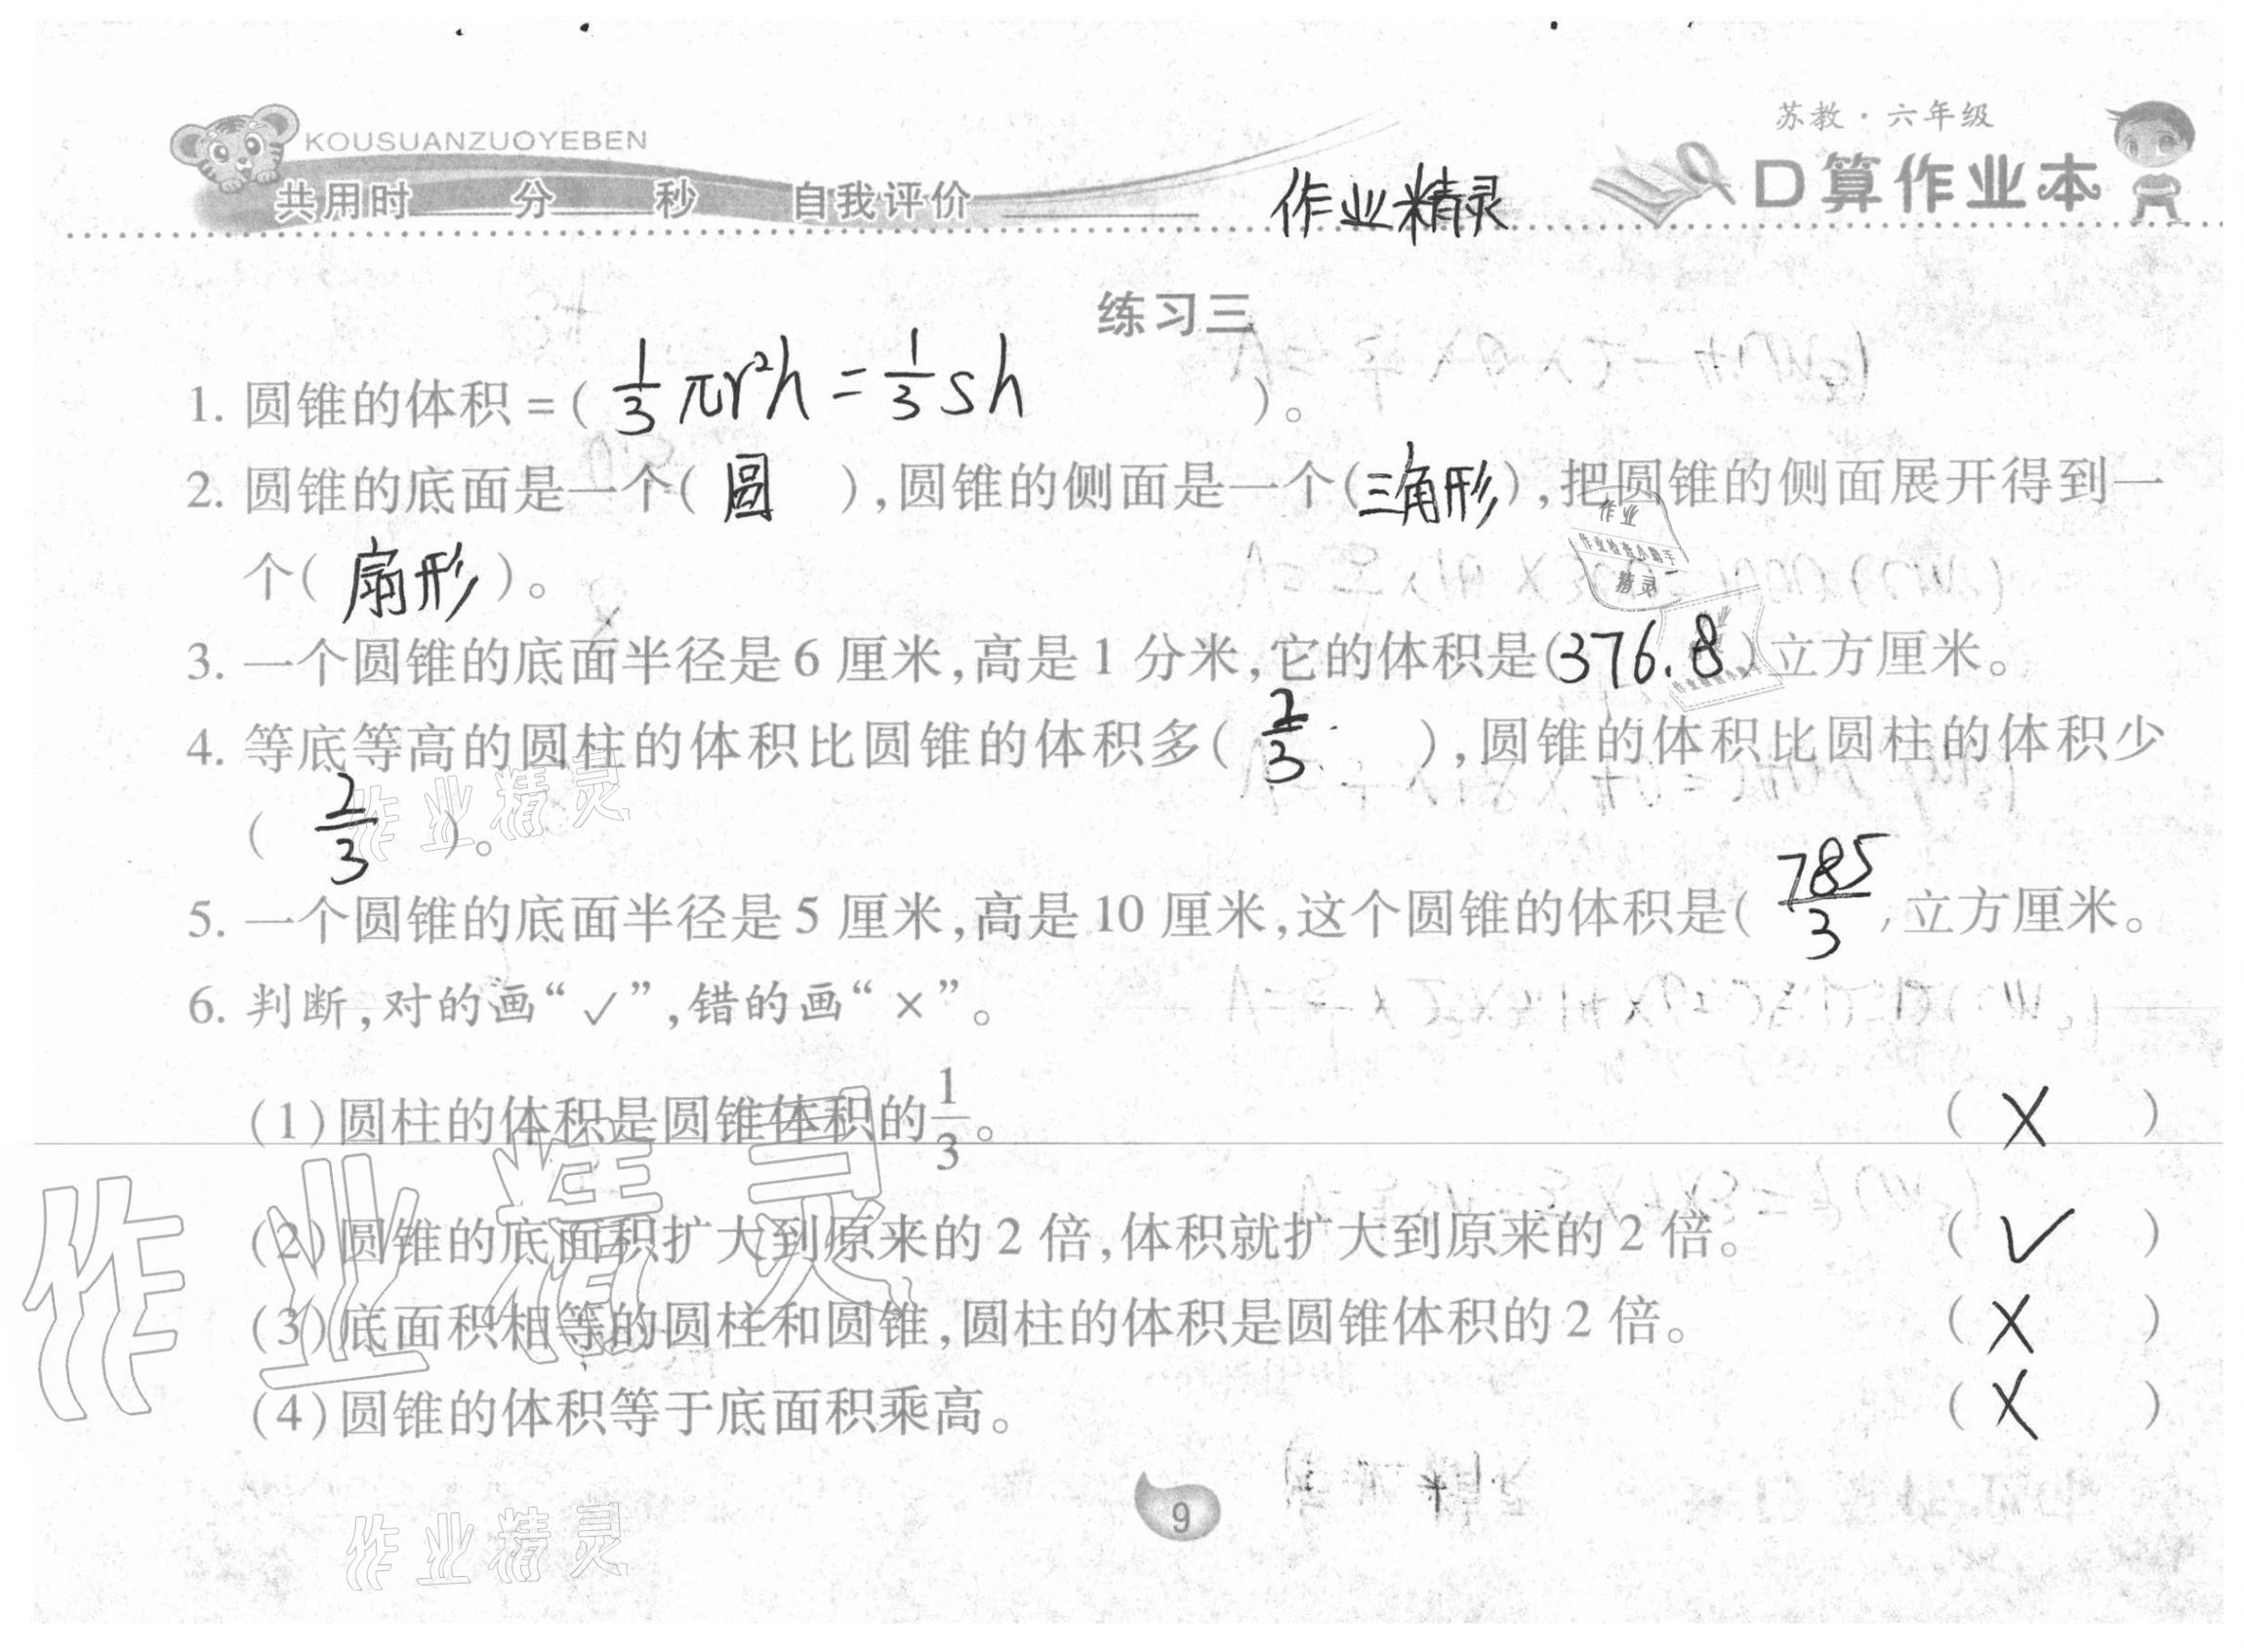 KOUSUANZUOYEBEN
苏教·六年级
口算作业本
共用时____分____秒 自我评价________
作业精灵
练习三
1. 圆锥的体积=( 1/3 πr²h = 1/3 sh )。
2. 圆锥的底面是一个( 圆 ),圆锥的侧面是一个(三角形),把圆锥的侧面展开得到一
个( 扇形 )。
3. 一个圆锥的底面半径是6厘米,高是1分米,它的体积是(376.8)立方厘米。
4. 等底等高的圆柱的体积比圆锥的体积多( 2/3 ),圆锥的体积比圆柱的体积少
( 2/3 )。
5. 一个圆锥的底面半径是5厘米,高是10厘米,这个圆锥的体积是( 785/3 )立方厘米。
6. 判断,对的画“✓”,错的画“×”。
(1)圆柱的体积是圆锥体积的1/3。 ( × )
(2)圆锥的底面积扩大到原来的2倍,体积就扩大到原来的2倍。 ( ✓ )
(3)底面积相等的圆柱和圆锥,圆柱的体积是圆锥体积的2倍。 ( × )
(4)圆锥的体积等于底面积乘高。 ( × )
9
作业
作业检查小助手
精灵
作业精灵
作业精灵
作业精灵